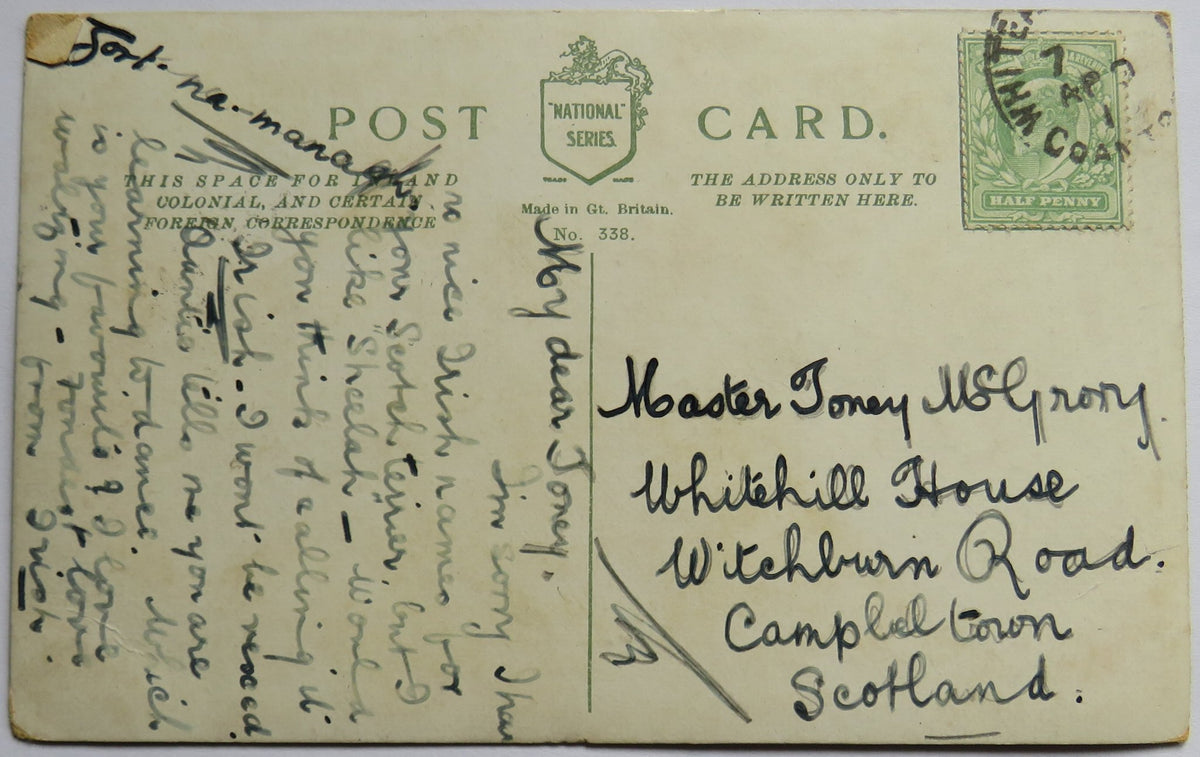 Fort-na-managh
POST CARD.
"NATIONAL" SERIES.
TRADE MARK
THIS SPACE FOR INLAND
COLONIAL, AND CERTAIN
FOREIGN CORRESPONDENCE
Made in Gt. Britain.
No. 338.
THE ADDRESS ONLY TO
BE WRITTEN HERE.
WHITE
7
AP
HALF PENNY
My dear Toney.
I'm sorry I have
no nice Irish names for
your Scotch terrier, but I
like "Sheelah" - Would
you think of calling it
Irish - I won't be vexed
Auntie tells me you are
learning to dance. Which
is your favourite? I love
waltzing - Fondest love
from Irish.
Master Toney McGrory.
Whitehill House
Witchburn Road.
Campbeltown
Scotland.